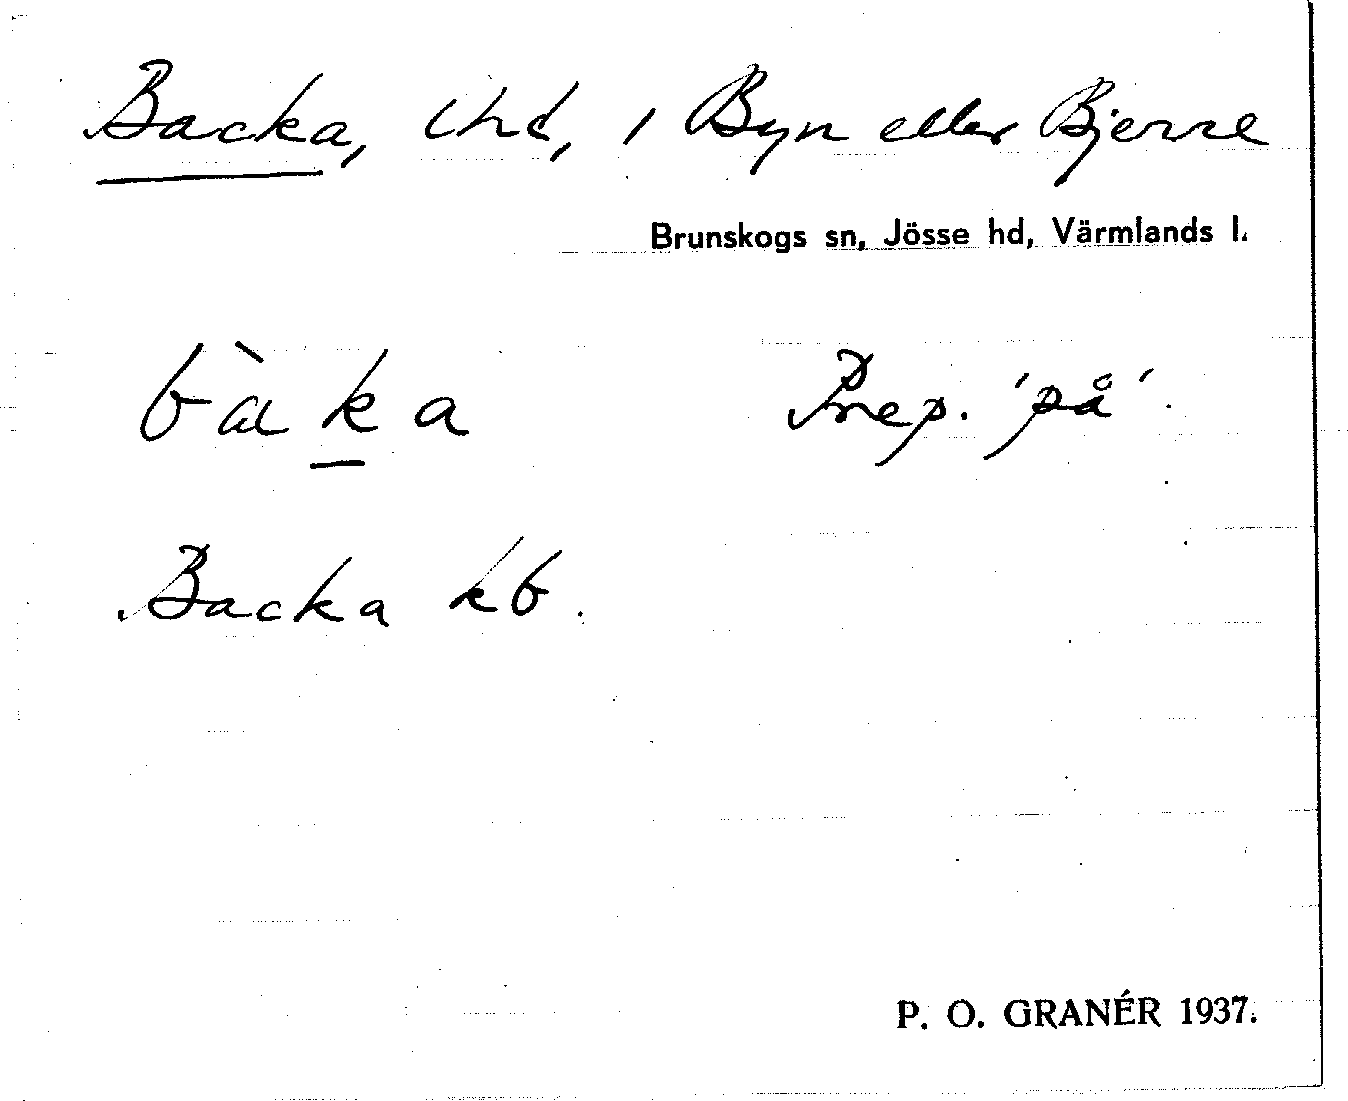 Backa, lht, i Byn eller Bjerre
Brunskogs sn, Jösse hd, Värmlands l.
bàka Prep. 'på'.
Backa kb.
P. O. GRANÉR 1937.